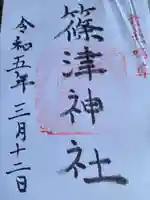 篠津神社
令和五年 三月十二日